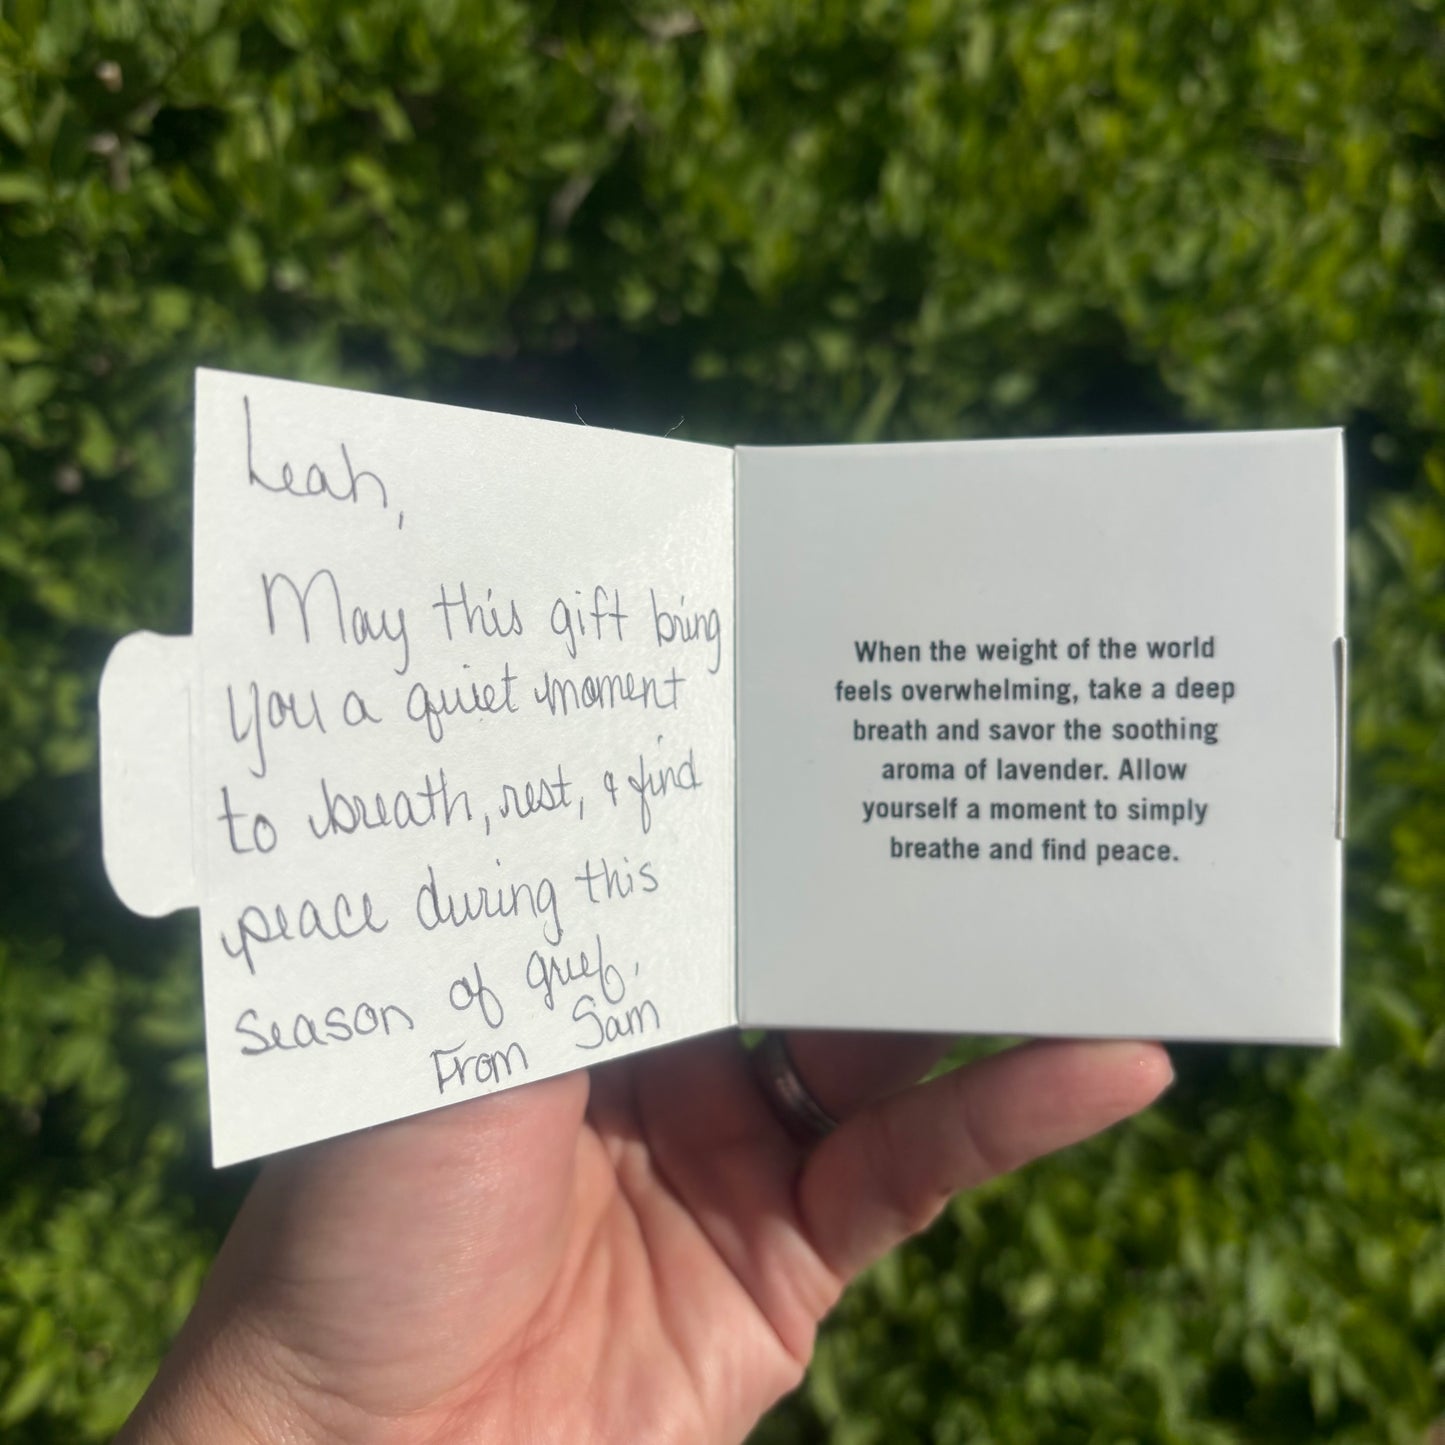 Leah,
May this gift bring
you a quiet moment
to breath, rest, & find
peace during this
season of grief.
From Sam
When the weight of the world
feels overwhelming, take a deep
breath and savor the soothing
aroma of lavender. Allow
yourself a moment to simply
breathe and find peace.